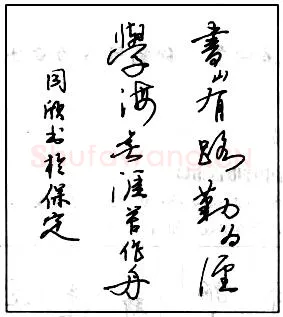 書山有路勤为徑
學海无涯苦作舟
国欣书於保定